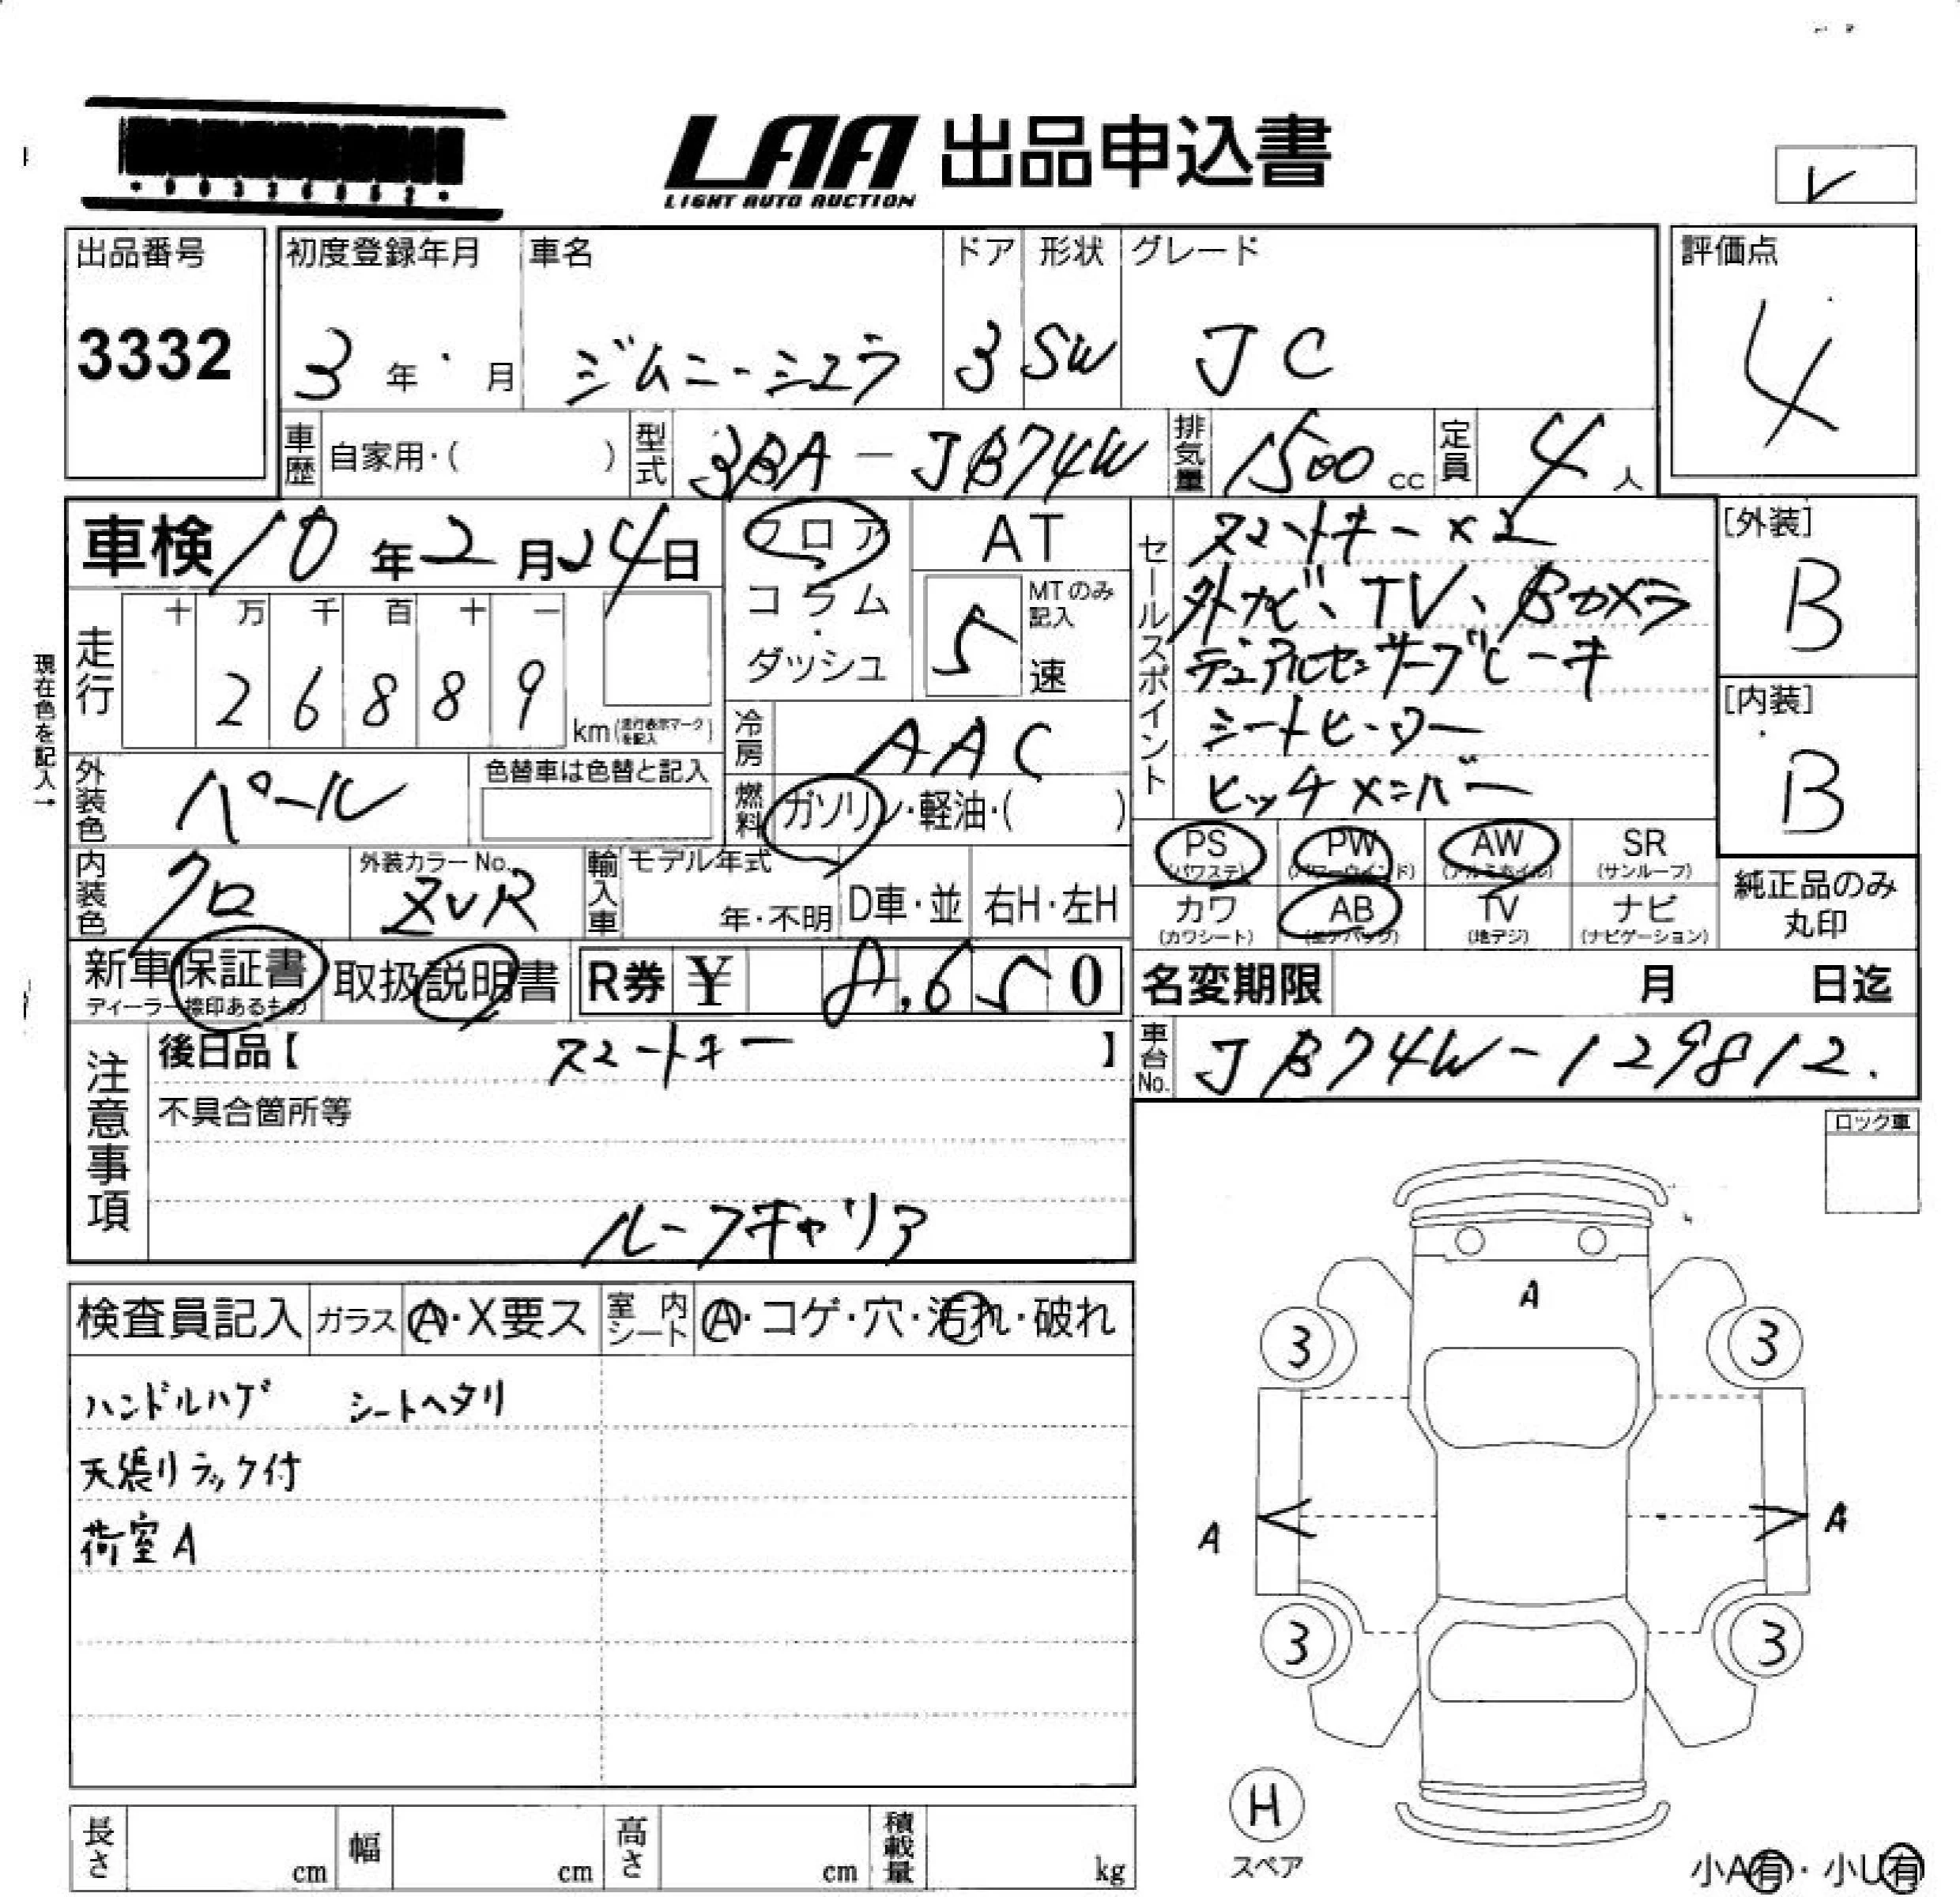 LAA 出品申込書
LIGHT AUTO AUCTION
レ
出品番号 初度登録年月 車名 ドア 形状 グレード 評価点
3332 3年・月 ジムニーシエラ 3 SW JC 4
車歴 自家用・( ) 型式 3BA-JB74W 排気量 1500cc 定員 4人
車検 10年2月24日 フロア・コラム・ダッシュ AT
5 MTのみ記入 速
走行 十 万 千 百 十 一
2 6 8 8 9 km(走行表示マークを記入)
現在色を記入→
外装色 パール 色替車は色替と記入
冷房 AAC
燃料 ガソリン・軽油・( )
内装色 クロ 外装カラーNo. ZVR 輸入車 モデル年式 年・不明 D車・並 右H・左H
セールスポイント
スマートキー×2
外ナビ、TV、Bカメラ
デュアルセンサーブレーキ
シートヒーター
ヒッチメンバー
[外装]
B
[内装]
B
PS (パワステ) PW (パワーウインド) AW (アルミホイル) SR (サンルーフ)
カワ (カワシート) AB (エアバッグ) TV (地デジ) ナビ (ナビゲーション)
純正品のみ丸印
新車保証書 ディーラー捺印あるもの 取扱説明書 R券 ¥ 8,650
名変期限 月 日迄
車台No. JB74W-129812.
注意事項
後日品【 スマートキー 】
不具合箇所等
ルーフキャリア
ロック車
検査員記入 ガラス A・X要ス 室内シート A・コゲ・穴・汚れ・破れ
ハンドルハゲ シートヘタリ
天張りラック付
荷室A
A
3 3
A A
3 3
H
スペア
長さ cm 幅 cm 高さ cm 積載量 kg
小A有・小U有